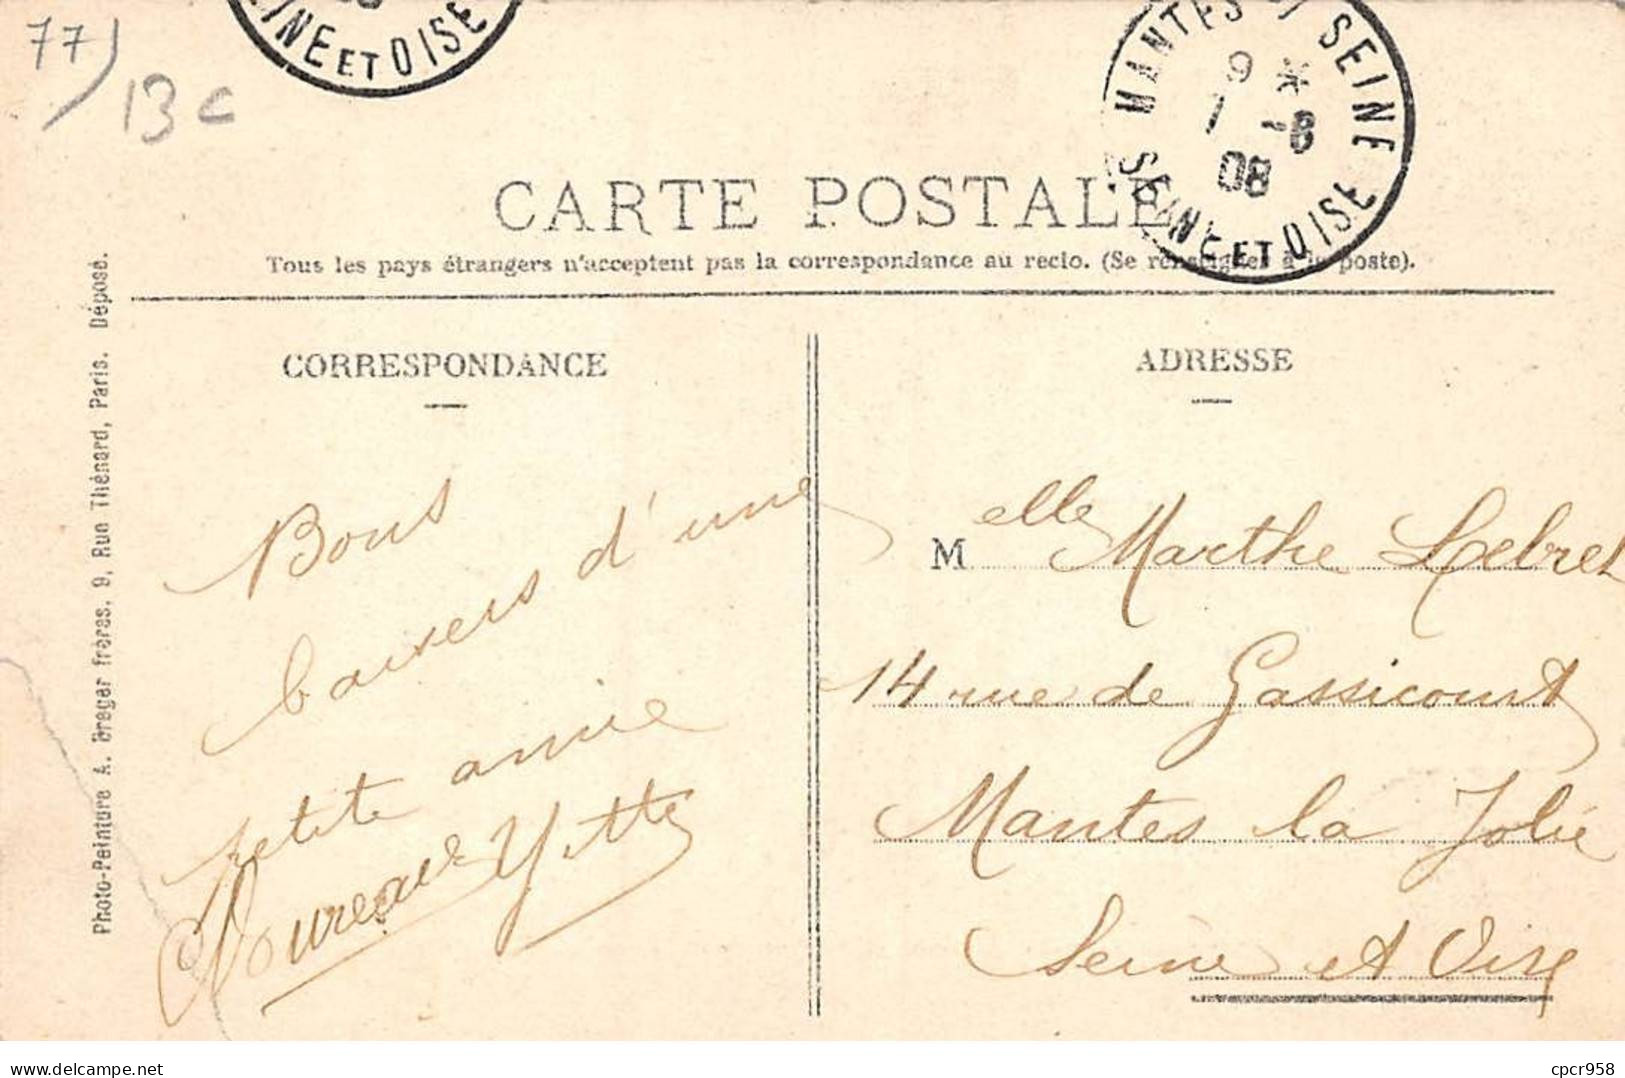 77)
13 C
SEINE ET OISE
MANTES S/ SEINE
9 *
1 -8
08
SEINE ET OISE
CARTE POSTALE
Tous les pays étrangers n'acceptent pas la correspondance au recto. (Se renseigner à la poste).
Photo-Peinture A. Breger frères, 9, Rue Thénard, Paris. Déposé.
CORRESPONDANCE
Bons
baisers d'une
petite amie
ADRESSE
M elle Marthe Lebret
14 rue de Gassicourt
Mantes la Jolie
Seine et Oise
Delcampe.net
cpcr958